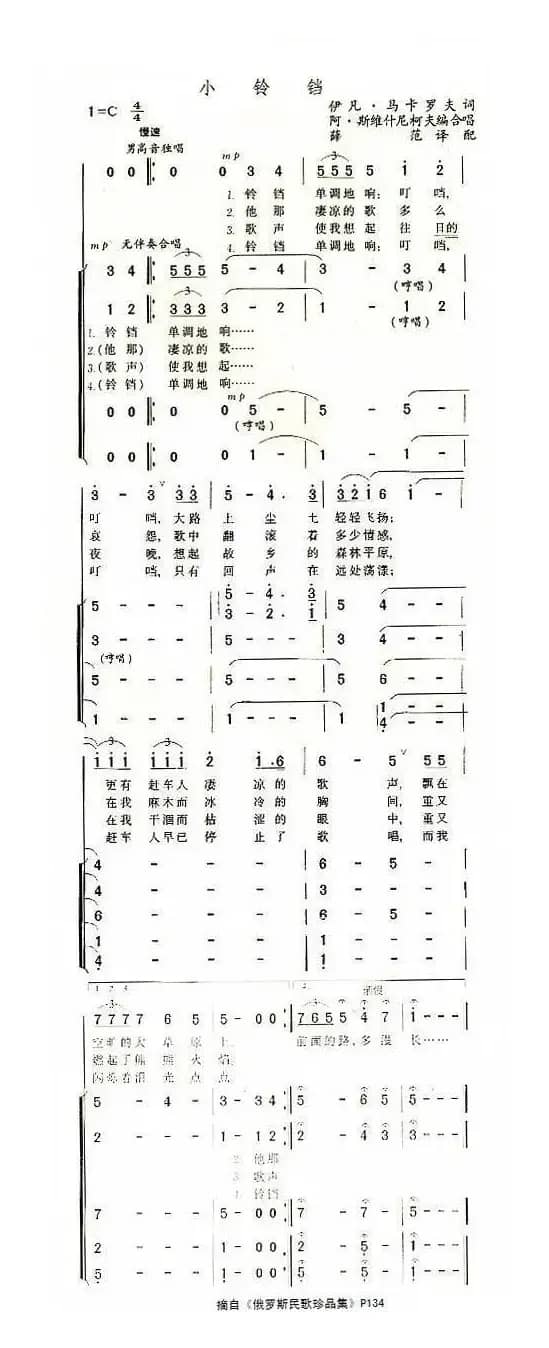 小 铃 铛
1=C 4/4
伊 凡 · 马 卡 罗 夫 词
阿 · 斯 维 什 尼 柯 夫 编 合 唱
薛 范 译 配
慢速
男高音独唱
mp
0 0 0 0 3 4 5 5 5 5 1 2
1. 铃 铛 单 调 地 响; 叮 当,
2. 他 那 凄 凉 的 歌 多 么
3. 歌 声 使 我 想 起 往 日 的
4. 铃 铛 单 调 地 响; 叮 当,
mp 无伴奏合唱
3 4 5 5 5 5 - 4 3 - 3 4
(哼唱)
1 2 3 3 3 3 - 2 1 - 1 2
(哼唱)
1. 铃 铛 单 调 地 响……
2.(他 那) 凄 凉 的 歌……
3.(歌 声) 使 我 想 起……
4.(铃 铛) 单 调 地 响……
mp
0 0 0 0 5 - 5 - 5 -
(哼唱)
0 0 0 0 1 - 1 - 1 -
3 - 3 3 3 5 - 4 . 3 3 2 1 6 1 -
叮 当, 大 路 上 尘 土 轻 轻 飞 扬;
哀 怨, 歌 中 翻 滚 着 多 少 情 感,
夜 晚, 想 起 故 乡 的 森 林 平 原,
叮 当, 只 有 回 声 在 远 处 荡 漾;
5 - - - 5 - 4 . 3 5 4 6 -
3 - - - 3 - 2 . 1 3 4 4 -
(哼唱)
5 - - - 5 - - - 5 6 6 -
1 - - - 1 - - - 1 - 1 -
4 -
1 1 1 1 1 1 2 1 . 6 6 - 5 5 5
更 有 赶 车 人 凄 凉 的 歌 声, 飘 在
在 我 麻 木 而 冰 冷 的 胸 间, 重 又
在 我 干 涸 而 枯 涩 的 眼 中, 重 又
赶 车 人 早 已 停 止 了 歌 唱, 而 我
4 - - - 6 - 5 -
4 - - - 3 - - -
6 - - - 6 - 5 -
1 - - - 1 - - -
4 - - - 1 - - -
1. 2. 3.
7 7 7 7 6 5 5 - 0 0 7 6 5 5 4 7 1 - - -
空 旷 的 大 草 原 上. 前 面 的 路, 多 漫 长……
燃 起 了 熊 熊 火 焰.
闪 烁 着 泪 光 点 点.
5 - 4 - 3 - 3 4 5 - 6 5 5 - - -
2 - - - 1 - 1 2 2 - 4 3 3 - - -
2. 他 那
3. 歌 声
4. 铃 铛
7 - - - 5 - 0 0 7 - 7 - 5 - - -
2 - - - 1 - 0 0 2 - 5 - 1 - - -
5 - - - 1 - 0 0 5 - 5 - 1 - - -
摘自《俄罗斯民歌珍品集》P134